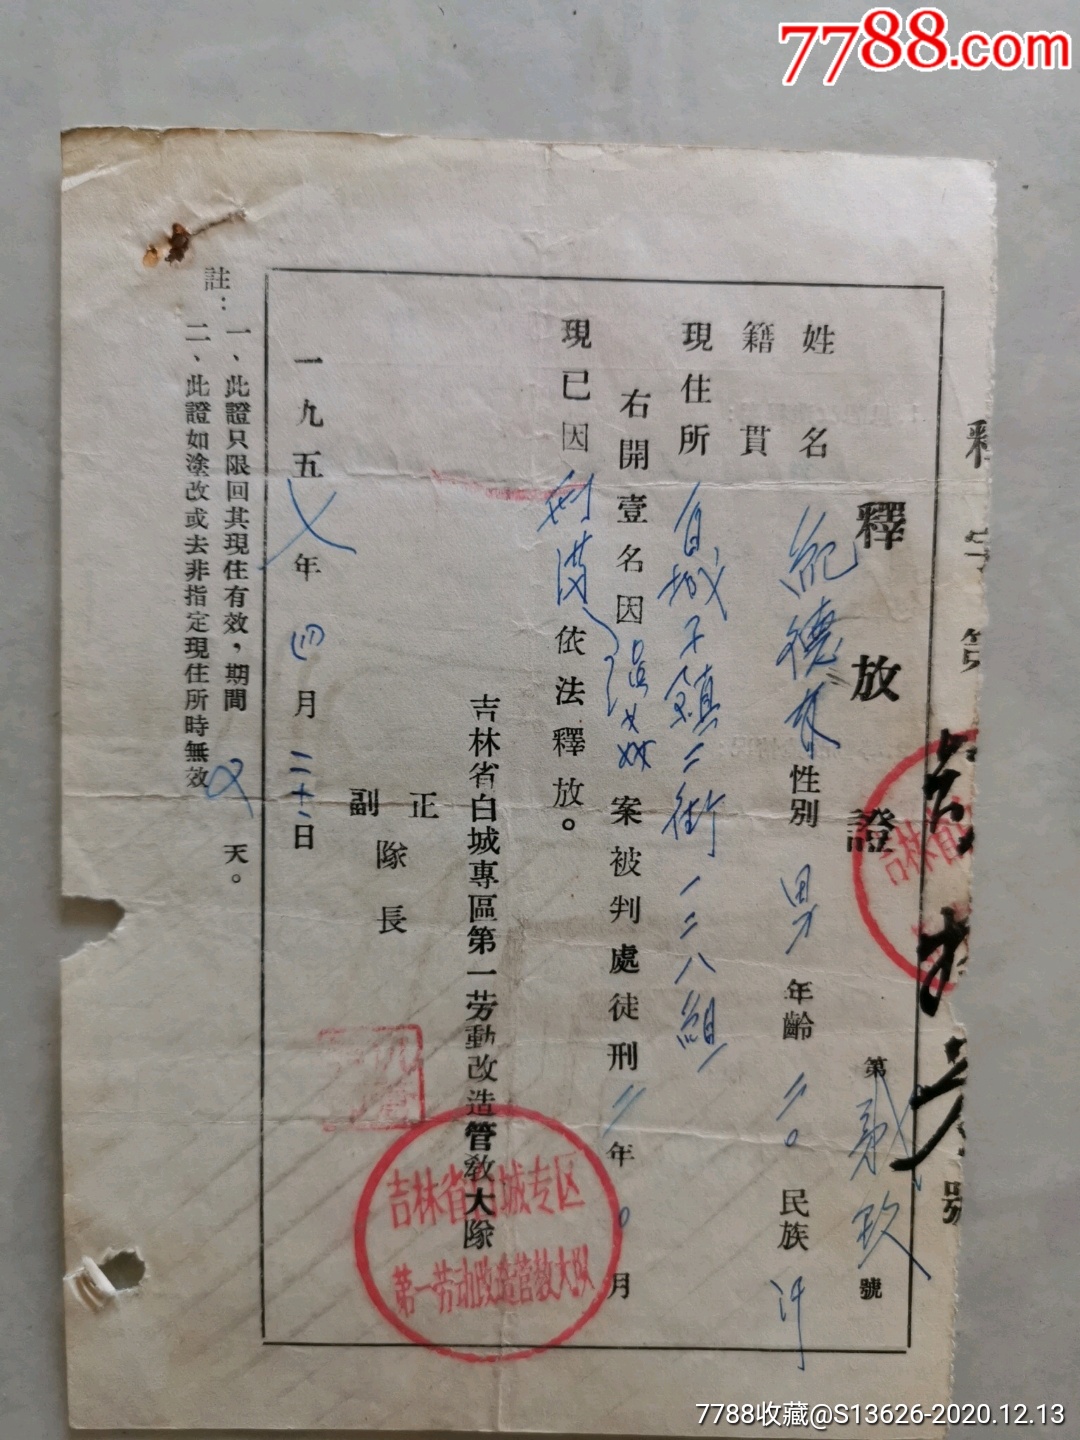 7788.com
釋放證
第貳玖號
姓名 紀德林 性別 男 年齡 二〇 民族 汗
籍貫
現住所 白城子鎮二街一二八組
右開壹名因 案被判處徒刑二年〇月
現已因刑滿依法釋放。
吉林省白城專區第一劳動改造管教大隊
正
副
隊長
一九五 年四月 日
註：
一、此證只限回其現住有效，期間 天。
二、此證如塗改或去非指定現住所時無效
號
吉林省白城专区
第一劳动改造管教大队
7788收藏@S13626-2020.12.13